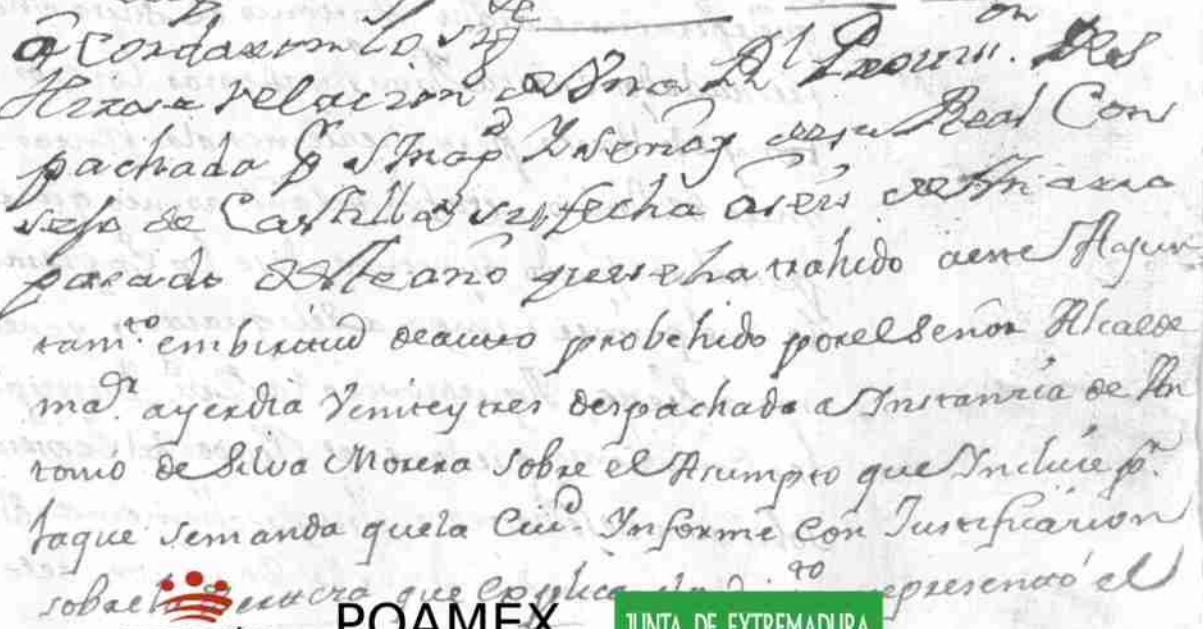 a Cordaron lo sig.te
Hizose relacion de Una Rl. Provis.on Des
pachada pr. S. Mag.d y Señores de su Real Con
sejo de Castilla su fecha a seis de Marzo
pasado de este año que se ha trahido a este Aiun
tam.to embirtud de auto probehido por el Señor Alcalde
ma.or ayer dia Veinte y tres despachada a Instancia de An
tonio de Silva Morera sobre el Asumpto que Incluie pr.
la que se manda que la Ciu.d Informe Con Justificacion
sobre la que explica representó el
POAMEX
JUNTA DE EXTREMADURA